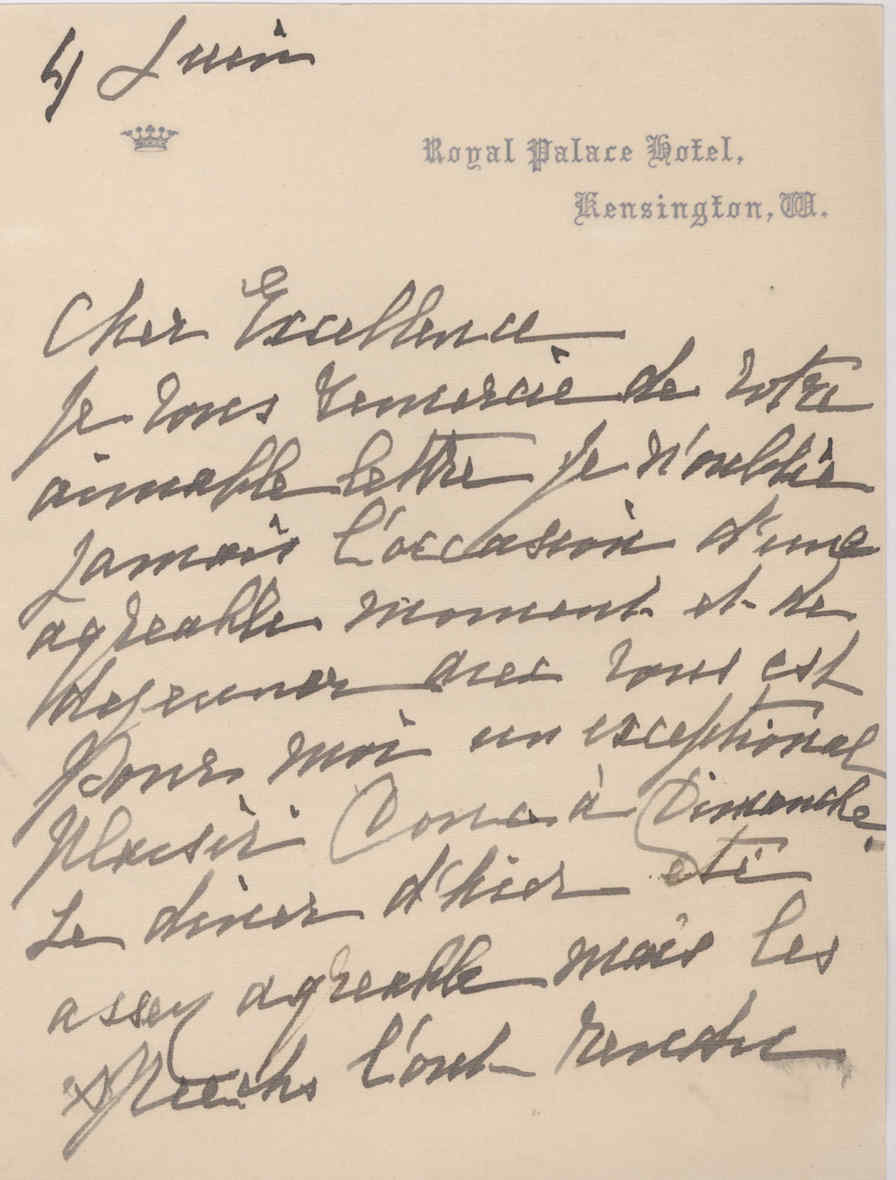 4 Juin
Royal Palace Hotel,
Kensington, W.
Cher Excellence
Je vous remercie de votre
aimable lettre Je n'oublie
Jamais l'occasion d'une
agreable moment et de
dejeuner avec vous est
Pour moi un exceptional
plaisir Donc à Dimanche.
Le diner d'hier eté
assez agreable mais les
speechs l'ont rendu